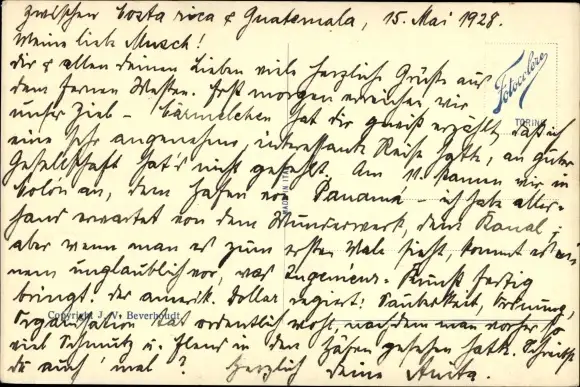 zwischen Costa rica & Guatemala, 15. Mai 1928.
Meine liebe Musch!
Dir & allen deinen Lieben viele herzliche Grüße aus
dem fernen Westen. Erst morgen erreichen wir
unser Ziel - hat dir gewiß erzählt, daß ich
eine sehr angenehme, interessante Reise hatte, an guter
Gesellschaft hat's nicht gefehlt. Am 11. kamen wir in
Colon an, dem Hafen von Panamá - ich habe aller-
hand erwartet von dem Wunderwerk, dem Kanal;
aber wenn man es zum ersten Male sieht, kommt es ei-
nem unglaublich vor, was Ingenieur-Kunst fertig
bringt. Der amerik. Dollar regiert: Sauberkeit, Ordnung,
Organisation tat ordentlich wohl, nachdem man vorher so
viel Schmutz u. Elend in den Häfen gesehen hatte. Schreibst
du auch 'mal? Herzlich deine Anita.
Fotocelere
TORINO
MADE IN ITALY
Copyright J. V. Beverhoudt